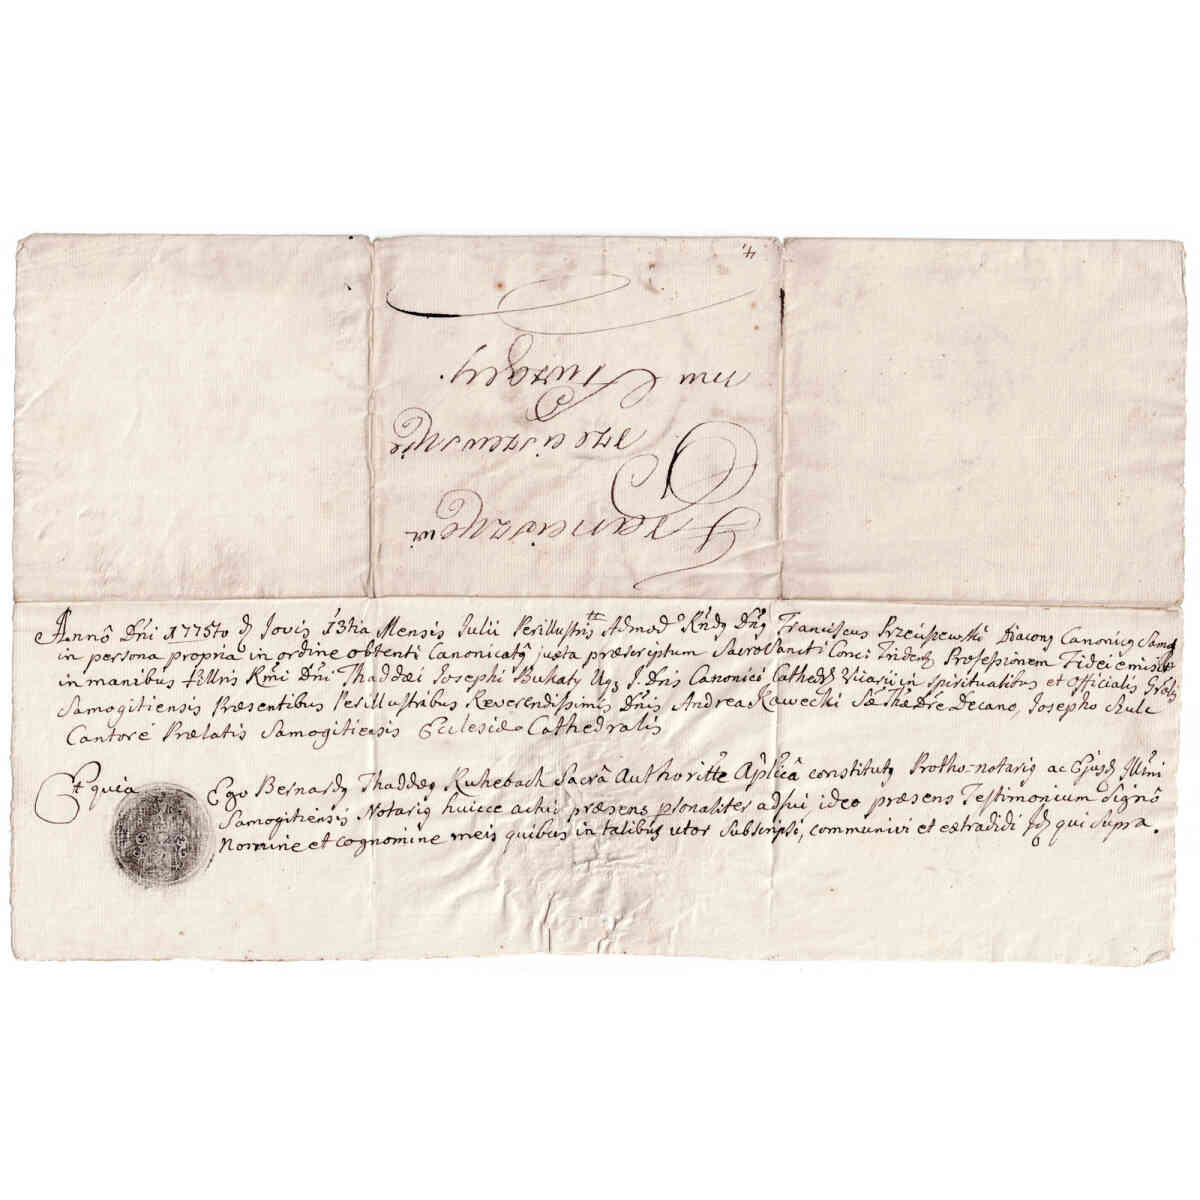 4.
Franciszkowi
Przeciszewskie
mu Służęcy.
Annô Dńi 1775to D Jovis 13tia Mensis Julii Perillustris Admod Rńdꝯ Dńꝯ Franciscus Przeciszewski Diaconꝯ Canonicꝯ Samog
in persona propria in ordine obtenti Canonicatꝯ juxta præscriptum Sacro Sancti Conci Trident Professionem Fidei emisit
in manibus Illris Rmi Dńi Thaddæi Josephi Bukaty J. Dris Canonici Cathed Vicarii in Spiritualibus et Officialis Gńlis
Samogitiensis Præsentibus Perillustribus Reverendissimis Dńis Andrea Rawecki Decano, Josepho Szulc
Cantore Prælatis Samogitiensis Ecclesiæ Cathedralis
Et quia Ego Bernardꝯ Thaddæꝯ Ruhebach Sacrâ Authoritte Aplicâ constitutꝯ Protho-notariꝯ ac Ejusd Illmi
Samogitiensis Notariꝯ huicce actui præsens pƚsonaliter adfui ideo præsens Testimonium Signô
Nomine et cognomine meis quibus in talibus utor Subscripsi, communivi et extradidi Id qui supra.